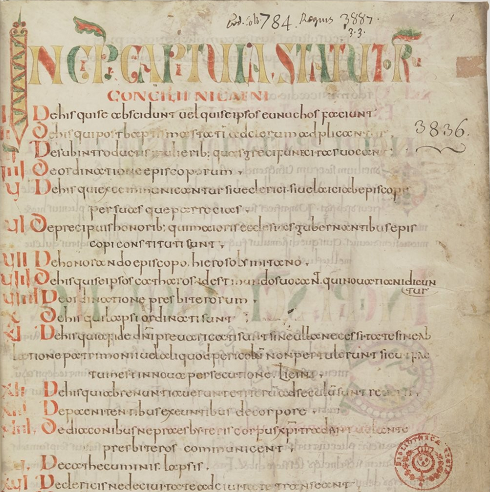 Cod. Colb. 784. Regius 3887.
3.3.
1
INCIP CAPITULA STATUTOR
CONCILII NICAENI
3836.
I De his qui se abscidunt vel qui se ipsos eunuchos faciunt
II De his qui post baptismo statim ad clerum adplicantur
III De subintroductis mulierib: quas greci sunisactas vocant
IIII De ordinatione episcoporum.
V De his qui excommunicantur sive clerici sive laici ab episcopis
per suas que parrocias.
VI De precipuis honorib: qui maioris eclesias gubernantibus epis
copi constituti sunt.
VII De honorando episcopo hierosolimitano.
VIII De his qui se ipsos catharos id est mundos vocant qui novatiani dicun
tur
VIIII De ordinatione presbiterorum
X De his qui lapsi ordinati sunt
XI De his qui fide dni prevaricati sunt sine ulla necessitate sine ab
latione patrimonii vel aliquod periculi non pertulerunt sicut fac
tum est in nova persecutione Licini.
XII De his qui abrenuntiaverunt et iterum ad seculum sunt reversi.
XIII De paenitentibus exeuntibus de corpore.
XIIII De diaconibus ne presbiteris corpus xpi tradant volente
presbiteros communicent;
De catthecuminis lapsis.
XVI De clericis ne de civitate ad civitate transeant
BIBLIOTHECA